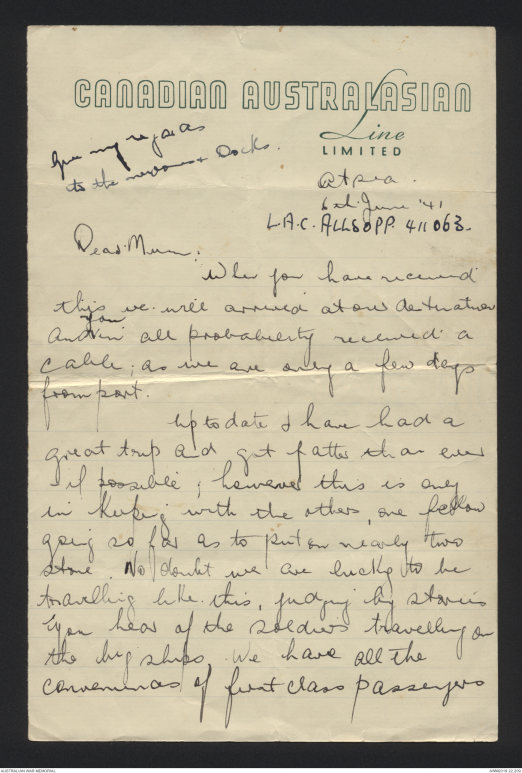 CANADIAN AUSTRALASIAN
Line
LIMITED
Give my regards
to the + Docks.
At sea.
6th June '41
L.A.C. ALLSOPP. 411063.
Dear Mum,
When you have received
this we will arrived at our destination
And you in all probability received a
cable; as we are only a few days
from port.
Up to date I have had a
great trip and got fatter than ever
if possible; however this is only
in keeping with the others, one fellow
going so far as to put on nearly two
stone. No doubt we are lucky to be
travelling like this, judging by stories
you hear of the soldiers travelling on
the big ships. We have all the
conveniences of first class passengers
AUSTRALIAN WAR MEMORIAL